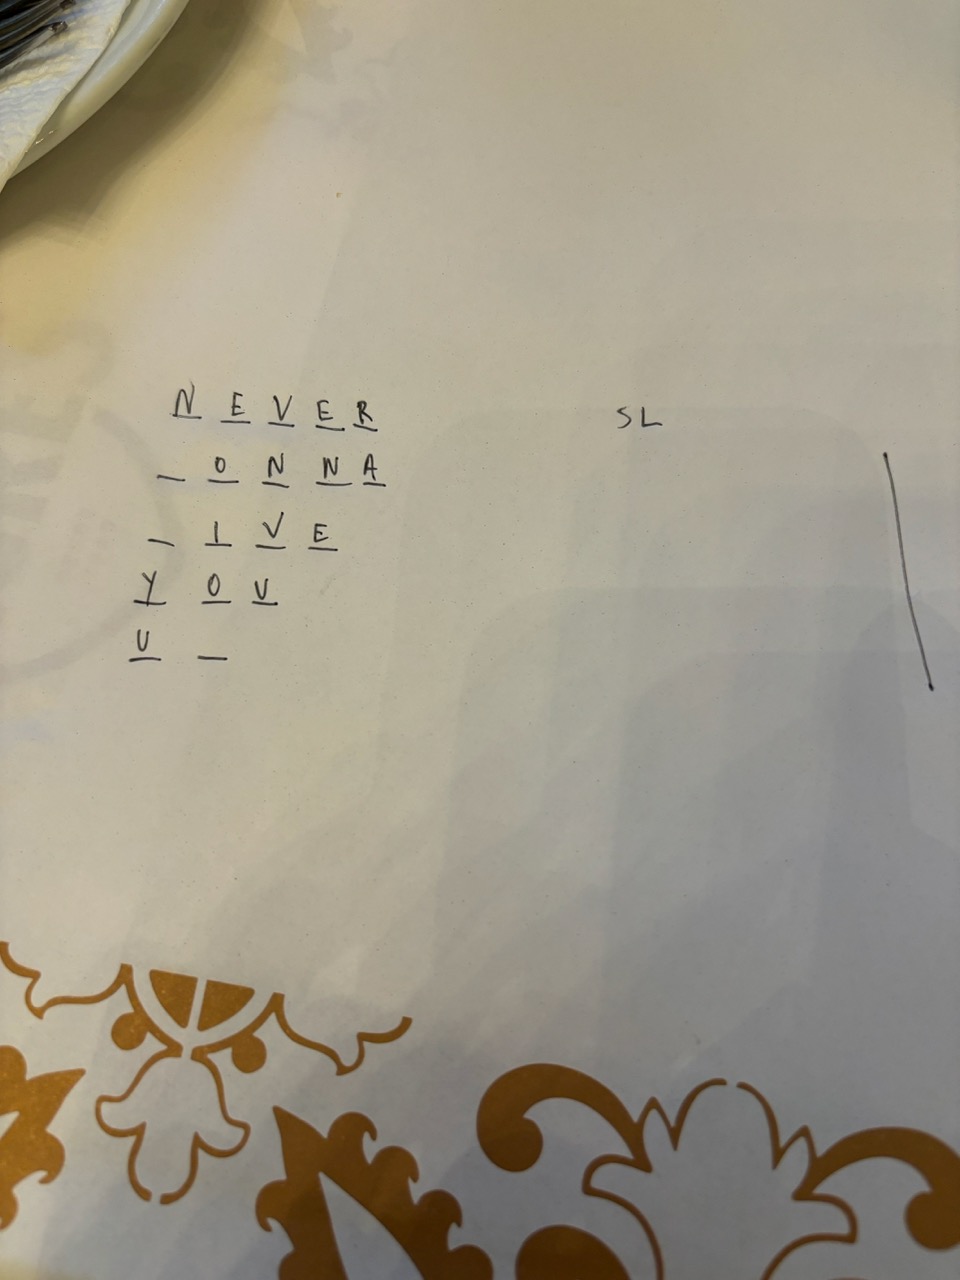 N E V E R
_ O N N A
_ I V E
Y O U
U _
SL